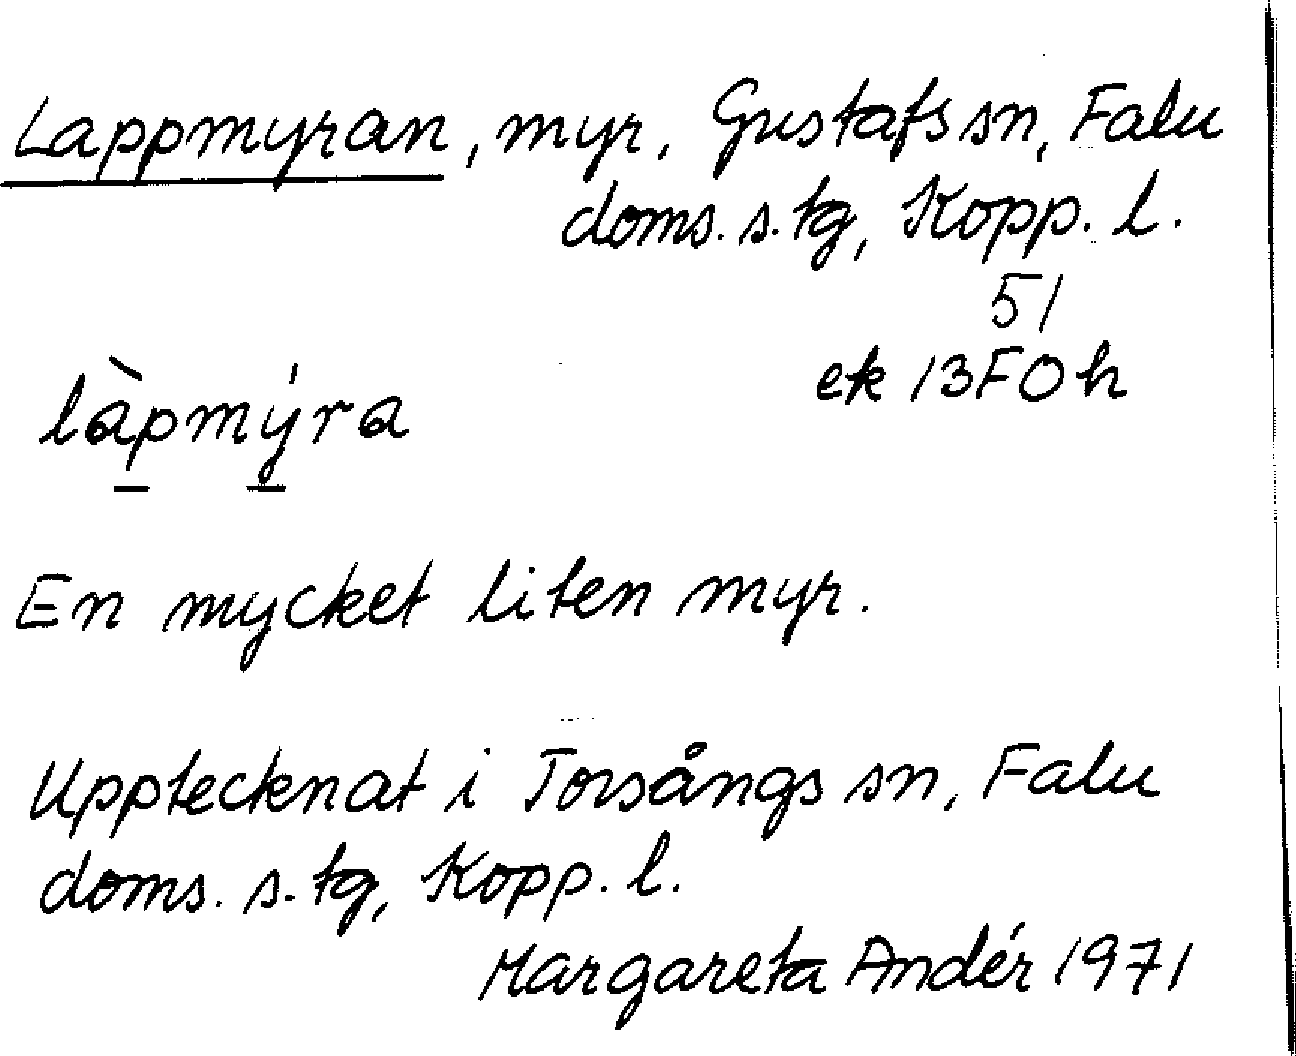 Lappmyran, myr, Gustafs sn, Falu
doms. s. tg, Kopp. l.
51
ek 13F0h
làpmýra
En mycket liten myr.
Upptecknat i Torsångs sn, Falu
doms. s. tg, Kopp. l.
Margareta Andér 1971